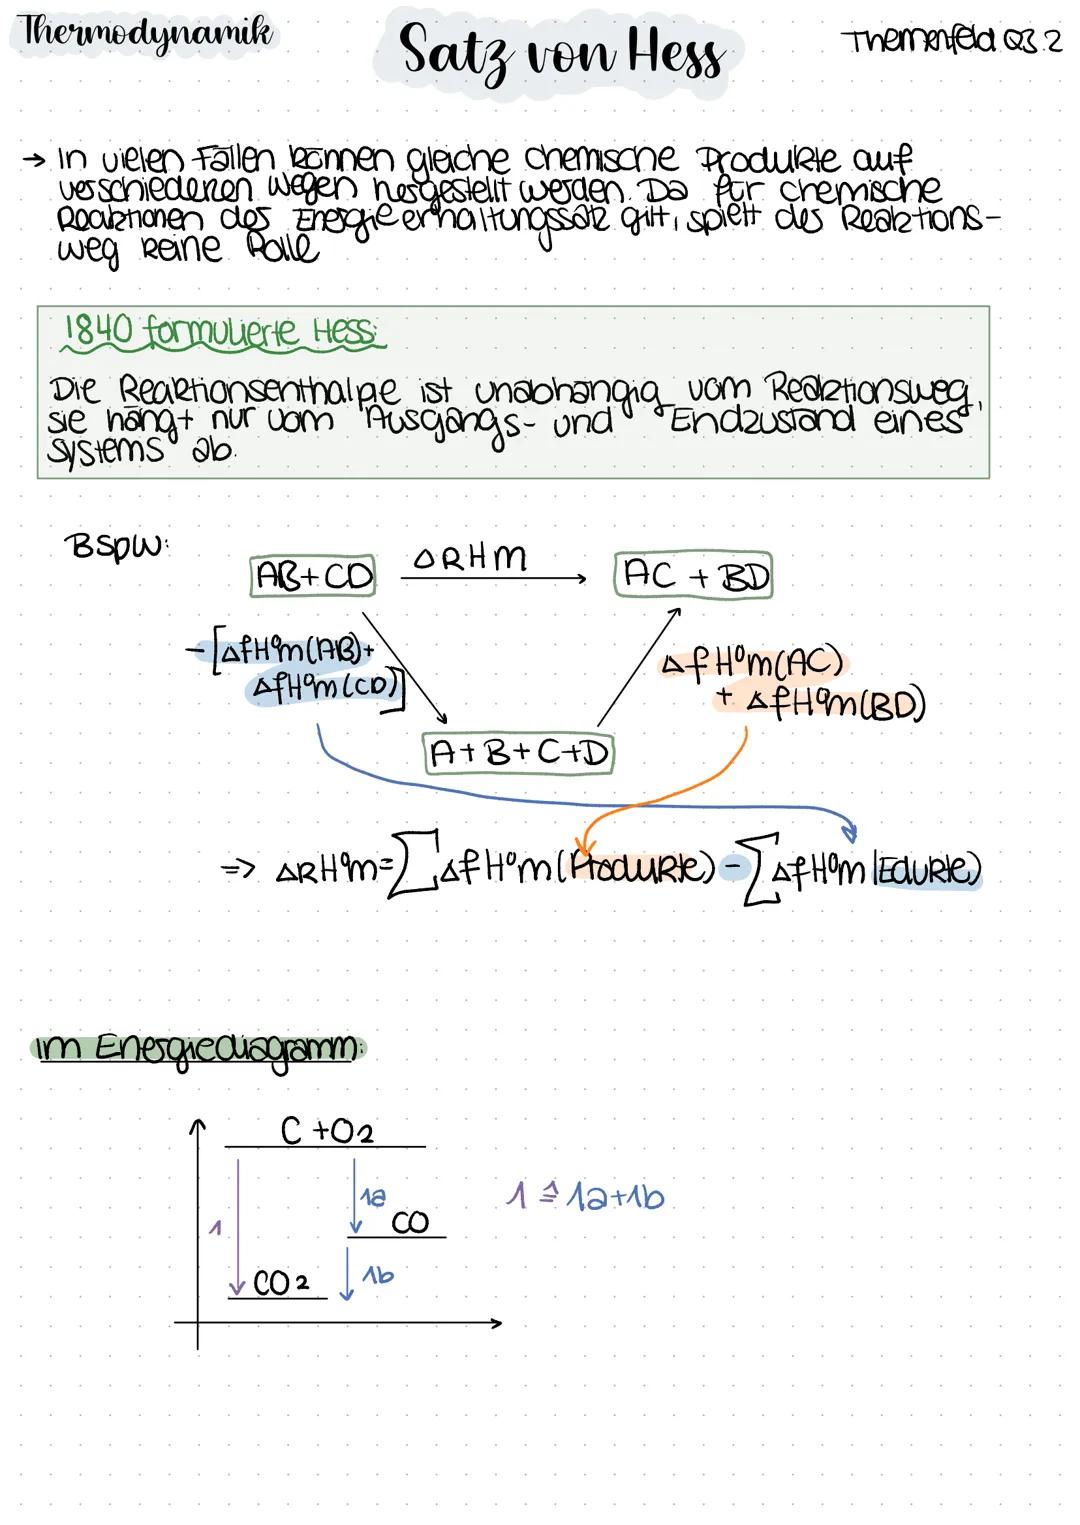 Thermodynamik
Satz von Hess
Themenfeld Q3.2
→ In vielen Fällen können gleiche chemische Produkte auf
verschiedenen Wegen hergestellt werden. Da für chemische
Reaktionen der Energieerhaltungssatz gilt, spielt der Reaktions-
weg keine Rolle
1840 formulierte Hess:
Die Reaktionsenthalpie ist unabhängig vom Reaktionsweg,
sie hängt nur vom Ausgangs- und Endzustand eines
Systems ab.
Bspw:
AB+CD
ΔRHm
AC + BD
-[ΔfH⁰m(AB)+
ΔfH⁰m(CD)]
ΔfH⁰m(AC)
+ ΔfH⁰m(BD)
A+B+C+D
=> ΔRH⁰m=∑ΔfH⁰m(Produkte)-∑ΔfH⁰m(Edukte)
im Energiediagramm:
C +O2
1a
1 ≙ 1a+1b
1
CO
CO2
1b